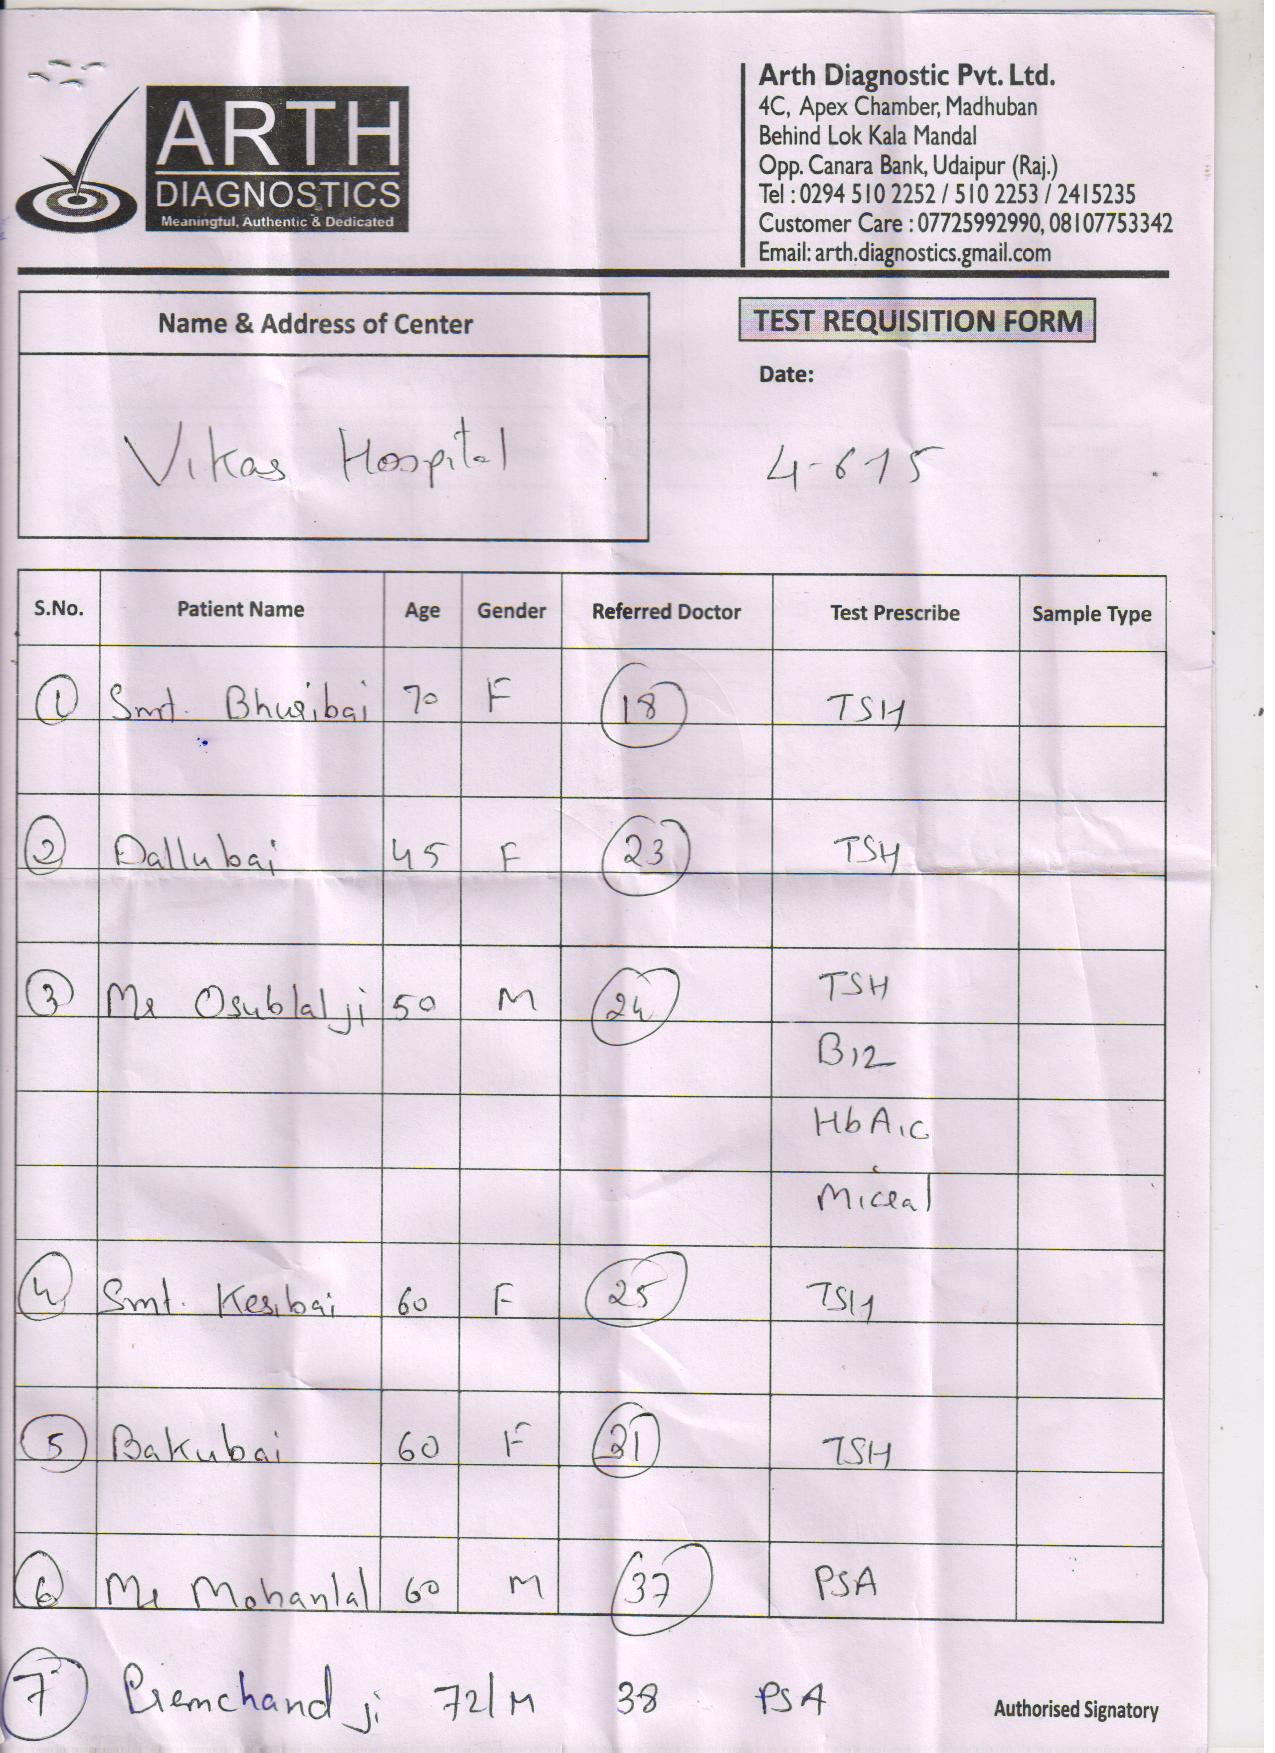 ARTH
DIAGNOSTICS
Meaningful, Authentic & Dedicated
Arth Diagnostic Pvt. Ltd.
4C, Apex Chamber, Madhuban
Behind Lok Kala Mandal
Opp. Canara Bank, Udaipur (Raj.)
Tel : 0294 510 2252 / 510 2253 / 2415235
Customer Care : 07725992990, 08107753342
Email: arth.diagnostics.gmail.com
Name & Address of Center
TEST REQUISITION FORM
Date:
Vikas Hospital
4-615
S.No. Patient Name Age Gender Referred Doctor Test Prescribe Sample Type
1 Smt. Bhuribai 70 F 18 TSH
2 Dallubai 45 F 23 TSH
3 Mr Osublalji 50 M 24 TSH
B12
HbA1c
Micral
4 Smt. Kesibai 60 F 25 TSH
5 Bakubai 60 F 31 TSH
6 Mr Mohanlal 60 M 37 PSA
7 Premchand ji 72/M 38 PSA
Authorised Signatory